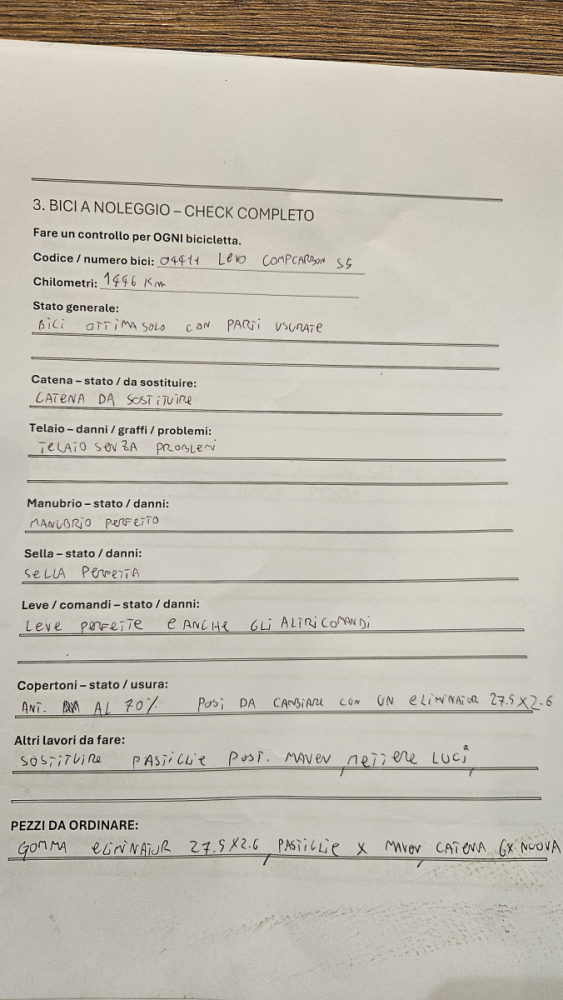 3. BICI A NOLEGGIO – CHECK COMPLETO
Fare un controllo per OGNI bicicletta.
Codice / numero bici: 04411 LEVO COMPCARBON S5
Chilometri: 1446 Km
Stato generale:
BICI OTTIMA SOLO CON PARTI USURATE
Catena – stato / da sostituire:
CATENA DA SOSTITUIRE
Telaio – danni / graffi / problemi:
TELAIO SENZA PROBLEMI
Manubrio – stato / danni:
MANUBRIO PERFETTO
Sella – stato / danni:
SELLA PERFETTA
Leve / comandi – stato / danni:
LEVE PERFETTE E ANCHE GLI ALTRI COMANDI
Copertoni – stato / usura:
ANT. AL 70% POST DA CAMBIARE CON UN ELIMINATOR 27.5X2.6
Altri lavori da fare:
SOSTITUIRE PASTIGLIE POST. MAVEN, METTERE LUCI
PEZZI DA ORDINARE:
GOMMA ELIMINATOR 27.5X2.6, PASTIGLIE X MAVEN, CATENA GX NUOVA